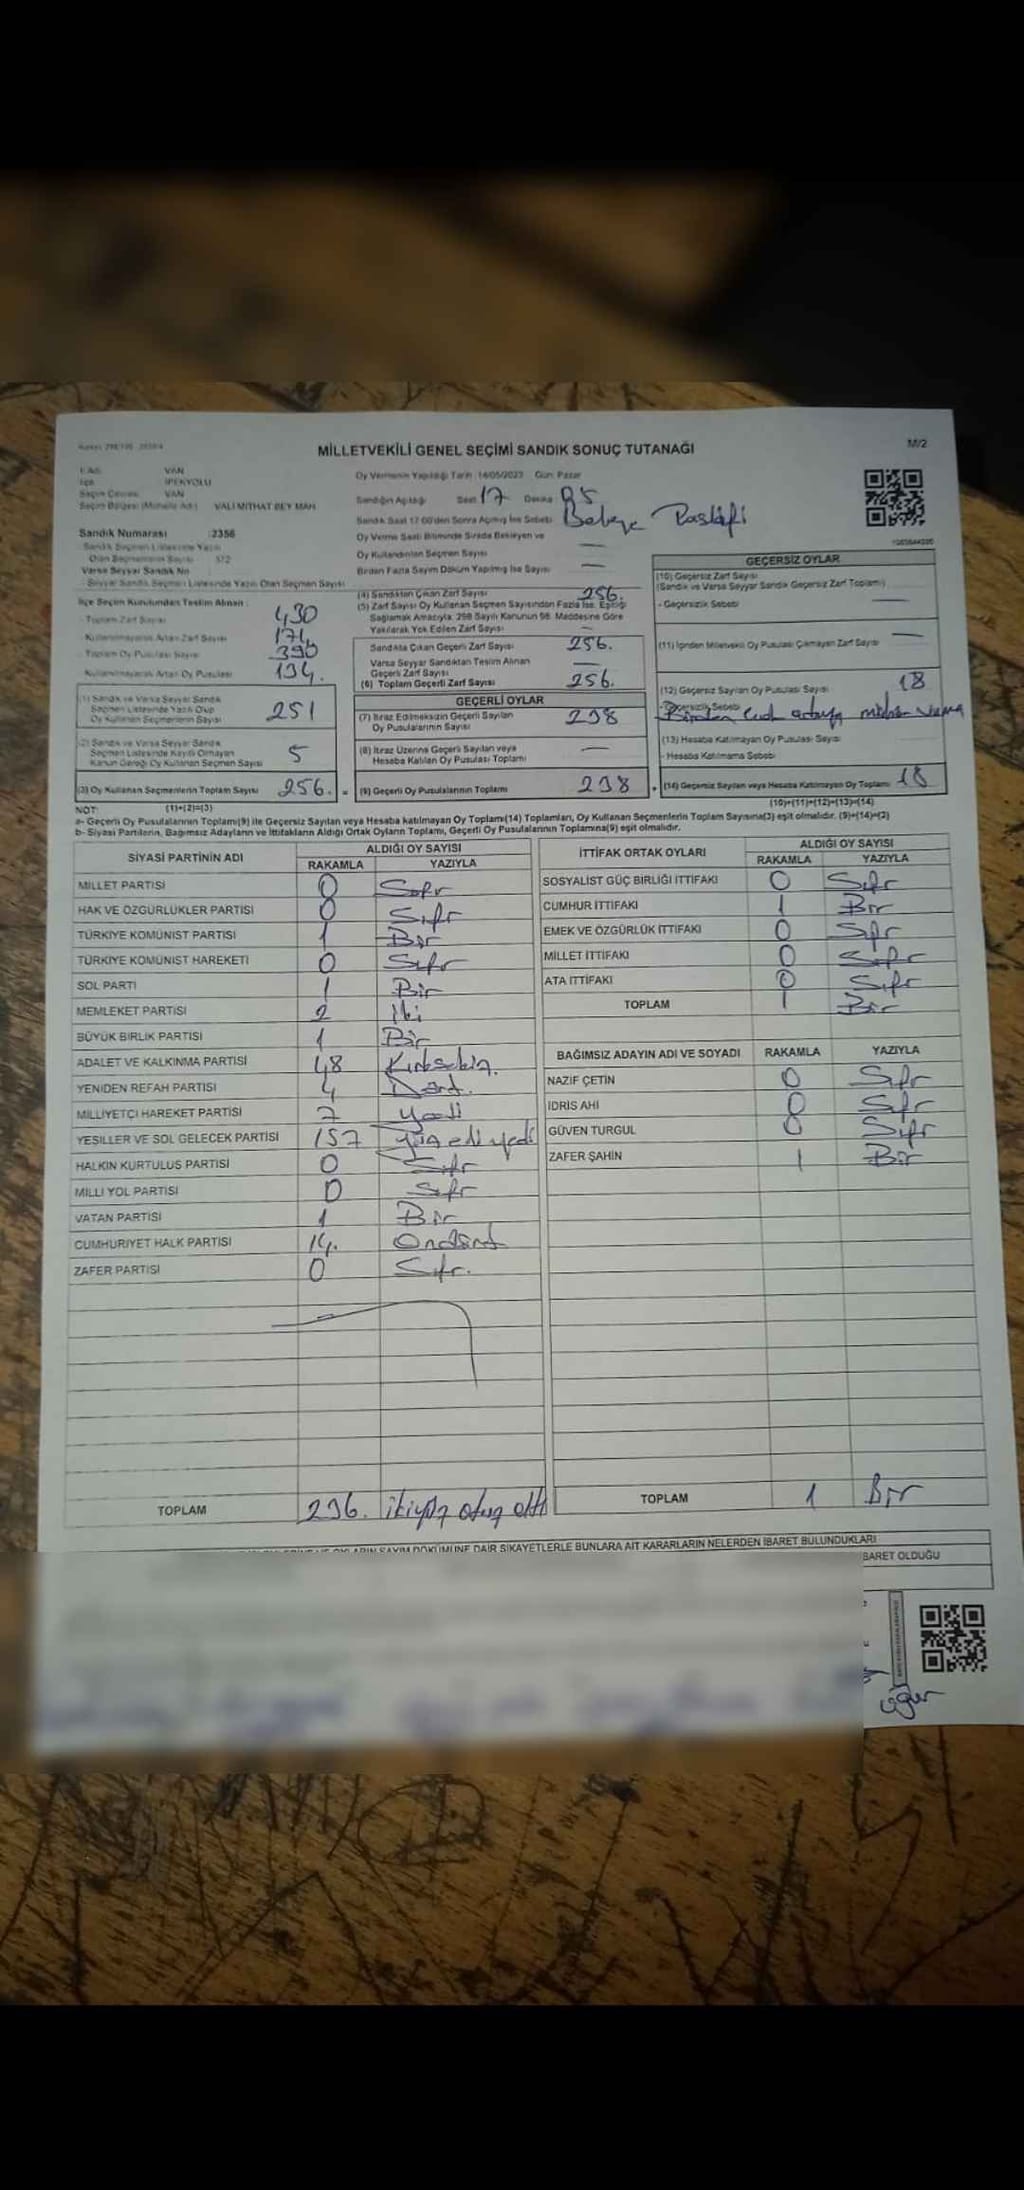 MİLLETVEKİLİ GENEL SEÇİMİ SANDIK SONUÇ TUTANAĞI
M/2
İli Adı : VAN
İlçe : İPEKYOLU
Seçim Çevresi : VAN
Seçim Bölgesi (Mahalle Adı) : VALİ MİTHAT BEY MAH
Sandık Numarası : 2356
Sandık Seçmen Listesine Yazılı
Olan Seçmenlerin Sayısı : 372
Varsa Seyyar Sandık No
Seyyar Sandık Seçmen Listesinde Yazılı Olan Seçmen Sayısı
Oy Vermenin Yapıldığı Tarih : 14/05/2023 Gün: Pazar
Sandığın Açıldığı Saat 17 Dakika
Sandık Saat 17:00'den Sonra Açılmış İse Sebebi
Oy Verme Saati Bitiminde Sırada Bekleyen ve
Oy Kullandırılan Seçmen Sayısı —
Birden Fazla Sayım Döküm Yapılmış İse Sayısı —
İlçe Seçim Kurulundan Teslim Alınan :
- Toplam Zarf Sayısı 430
- Kullanılmayarak Artan Zarf Sayısı 174
- Toplam Oy Pusulası Sayısı 390
- Kullanılmayarak Artan Oy Pusulası 134.
(1) Sandık ve Varsa Seyyar Sandık
Seçmen Listesinde Yazılı Olup
Oy Kullanan Seçmenlerin Sayısı 251
(2) Sandık ve Varsa Seyyar Sandık
Seçmen Listesinde Kayıtlı Olmayan
Kanun Gereği Oy Kullanan Seçmen Sayısı 5
(3) Oy Kullanan Seçmenlerin Toplam Sayısı 256.
(1)+(2)=(3)
(4) Sandıktan Çıkan Zarf Sayısı 256.
(5) Zarf Sayısı Oy Kullanan Seçmen Sayısından Fazla İse, Eşitliği
Sağlamak Amacıyla, 298 Sayılı Kanunun 98. Maddesine Göre
Yakılarak Yok Edilen Zarf Sayısı —
Sandıkta Çıkan Geçerli Zarf Sayısı 256.
Varsa Seyyar Sandıktan Teslim Alınan
Geçerli Zarf Sayısı —
(6) Toplam Geçerli Zarf Sayısı 256.
GEÇERLİ OYLAR
(7) İtiraz Edilmeksizin Geçerli Sayılan
Oy Pusulalarının Sayısı 238
(8) İtiraz Üzerine Geçerli Sayılan veya
Hesaba Katılan Oy Pusulası Toplamı —
(9) Geçerli Oy Pusulalarının Toplamı 238
GEÇERSİZ OYLAR
(10) Geçersiz Zarf Sayısı
(Sandık ve Varsa Seyyar Sandık Geçersiz Zarf Toplamı)
- Geçersizlik Sebebi —
(11) İçinden Milletvekili Oy Pusulası Çıkmayan Zarf Sayısı —
(12) Geçersiz Sayılan Oy Pusulası Sayısı 18
- Geçersizlik Sebebi
(13) Hesaba Katılmayan Oy Pusulası Sayısı
- Hesaba Katılmama Sebebi
(14) Geçersiz Sayılan veya Hesaba Katılmayan Oy Toplamı 18
(10)+(11)+(12)+(13)=(14)
NOT:
a- Geçerli Oy Pusulalarının Toplamı(9) ile Geçersiz Sayılan veya Hesaba katılmayan Oy Toplamı(14) Toplamları, Oy Kullanan Seçmenlerin Toplam Sayısına(3) eşit olmalıdır. (9)+(14)=(3)
b- Siyasi Partilerin, Bağımsız Adayların ve İttifakların Aldığı Ortak Oyların Toplamı, Geçerli Oy Pusulalarının Toplamına(9) eşit olmalıdır.
SİYASİ PARTİNİN ADI ALDIĞI OY SAYISI
RAKAMLA YAZIYLA
MİLLET PARTİSİ 0 Sıfır
HAK VE ÖZGÜRLÜKLER PARTİSİ 0 Sıfır
TÜRKİYE KOMÜNİST PARTİSİ 1 Bir
TÜRKİYE KOMÜNİST HAREKETİ 0 Sıfır
SOL PARTİ 1 Bir
MEMLEKET PARTİSİ 2 İki
BÜYÜK BİRLİK PARTİSİ 1 Bir
ADALET VE KALKINMA PARTİSİ 48 Kırksekiz.
YENİDEN REFAH PARTİSİ 4 Dört.
MİLLİYETÇİ HAREKET PARTİSİ 7 Yedi
YEŞİLLER VE SOL GELECEK PARTİSİ 157 Yüzelliyedi
HALKIN KURTULUŞ PARTİSİ 0 Sıfır
MİLLİ YOL PARTİSİ 0 Sıfır
VATAN PARTİSİ 1 Bir
CUMHURİYET HALK PARTİSİ 14. Ondört
ZAFER PARTİSİ 0 Sıfır.
TOPLAM 236. ikiyüz otuz altı
İTTİFAK ORTAK OYLARI ALDIĞI OY SAYISI
RAKAMLA YAZIYLA
SOSYALİST GÜÇ BİRLİĞİ İTTİFAKI 0 Sıfır
CUMHUR İTTİFAKI 1 Bir
EMEK VE ÖZGÜRLÜK İTTİFAKI 0 Sıfır
MİLLET İTTİFAKI 0 Sıfır
ATA İTTİFAKI 0 Sıfır
TOPLAM 1 Bir
BAĞIMSIZ ADAYIN ADI VE SOYADI RAKAMLA YAZIYLA
NAZİF ÇETİN 0 Sıfır
İDRİS AHİ 0 Sıfır
GÜVEN TURGUL 0 Sıfır
ZAFER ŞAHİN 1 Bir
TOPLAM 1 Bir
OYLARIN SAYIM DÖKÜMÜNE DAİR ŞİKAYETLERLE BUNLARA AİT KARARLARIN NELERDEN İBARET BULUNDUKLARI
BARET OLDUĞU